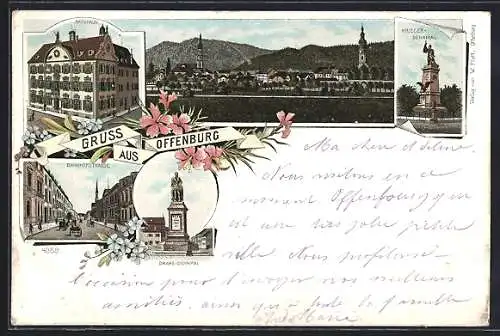 RATHAUS
KRIEGER-
DENKMAL
GRUSS
AUS
OFFENBURG
BAHNHOFSTRASSE
DRAKE-DENKMAL
4059
Ma chere
Nous sommes en ce
moment Offenbourg qui
est une très jolie petite
ville Nous profitons
l'occasion pour t'envoyer nos meilleures
amitiés, ainsi qu'à toute la famille